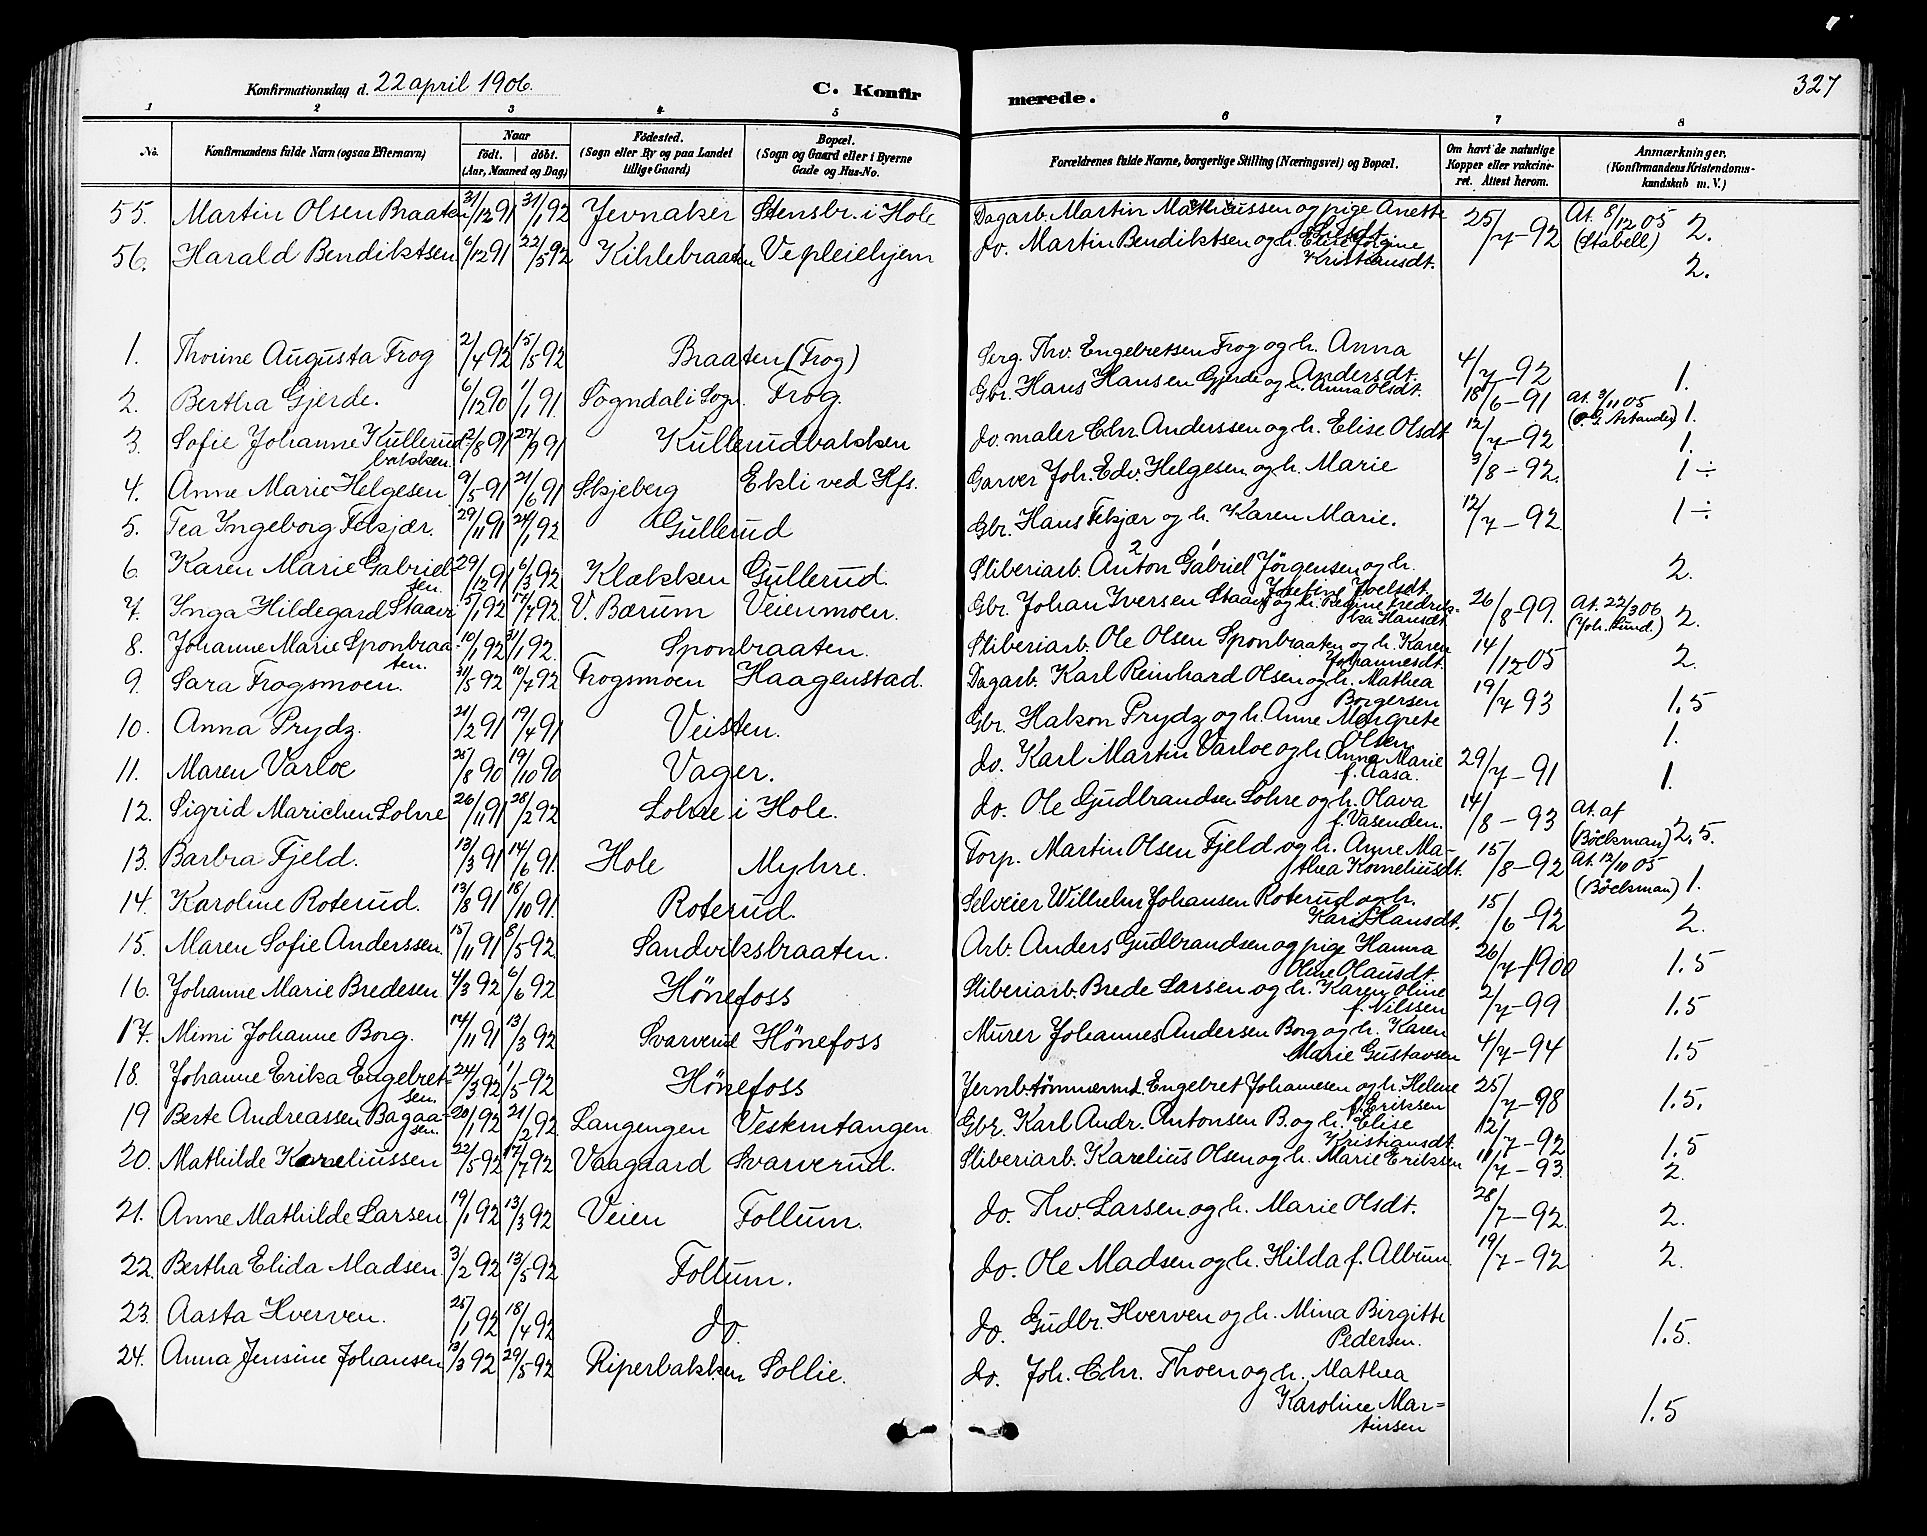 327
Konfirmationsdag d. 22 april 1906.
C. Konfirmerede.
1 2 3 4 5 6 7 8
No. Konfirmandens fulde Navn (ogsaa Efternavn) Naar født. døbt. (Aar, Maaned og Dag) Fødested. (Sogn eller By og paa Landet tillige Gaard) Bopæl. (Sogn og Gaard eller i Byerne Gade og Hus-No. Forældrenes fulde Navne, borgerlige Stilling (Næringsvei) og Bopæl. Om havt de naturlige Kopper eller vakcineret. Attest herom. Anmærkninger. (Konfirmandens Kristendomskundskab m. V.)
55. Martin Olsen Braaten 31/12 91 31/1 92 Jevnaker Stensbr. i Hole Dagarb. Martin Mathiussen og pige Anette Olsdt. 25/7-92 At. 8/12 05 (Stabell) 2.
56. Harald Bendiktsen 6/12 91 22/5 92 Kihlebraaten Ve pleiehjem do. Martin Bendiktsen og h. Elise Jorgine Kristiansdt. 2.
1. Thorine Augusta Frog 2/4 92 15/5 92 Braaten (Frog) Serg. Thv. Engebretsen Frog og h. Anna Andersdt. 4/7-92 1.
2. Bertha Gjerde. 6/12 90 1/1 91. Sogndal i Sogn Frog. Gbr. Hans Hansen Gjerde og h. Anna Olsdt. 18/6-91 At. 3/11 05 1.
3. Sofie Johanne Kullerudbakken. 2/8 91 27/9 91 Kullerudbakken do. maler Chr. Anderssen og h. Elise Olsdt 12/7-92 1.
4. Anne Marie Helgesen 9/5 91 21/6 91 Skjeberg Ekli ved Hfs. Garver Joh. Edv. Helgesen og h. Marie 3/8-92. 1 ÷
5. Tea Ingeborg Fekjær. 29/11 91 24/1 92 Gullerud Gbr. Hans Fekjær og h. Karen Marie. 12/7-92. 1 ÷
6. Karen Marie Gabrielsen. 29/12 91 6/3 92 Klækken Gullerud. Sliberiarb. Anton Gabriel Jørgensen og h. Josefine Joelsdt. 2.
7. Ynga Hildegard Staavi 5/1 92 17/7 92 V. Bærum Veienmoen. Gbr. Johan Iversen Staavi og h. Regine Fredrikka Hansdt 26/8-99. At. 22/3 06 (Joh. Lund.) 2.
8. Johanne Marie Sponbraaten. 10/1 92 31/1 92. Sponbraaten. Sliberiarb. Ole Olsen Sponbraaten og h. Karen Johannesdt. 14/12 05 2.
9. Sara Frogsmoen. 31/5 92 10/7 92 Frogsmoen Haagenstad. Dagarb. Karl Reinhard Olsen og h. Mathea Borgersen 19/7 93 1.5
10. Anna Prydz. 21/2 91 19/4 91 Veisten. Gbr. Hakon Prydz og h. Anne Margrete Olsen 1.
11. Maren Varloe 25/8 90 19/10 90 Vager. do. Karl Martin Varloe og h. Anna Marie f. Aasa. 29/7-91 1.
12. Sigrid Marichen Lohre 26/11 91 28/2 92 Lohre i Hole. do. Ole Gudbrandsen Lohre og h. Olava f. Vasenden. 14/8-93 At. af (Böckman) 2,5.
13. Barbra Fjeld. 13/3 91 14/6 91. Hole Myhre. Forp. Martin Olsen Fjeld og h. Anne Mathea Korneliusdt. 15/8-92 At. 12/10 05 (Böckman) 1.
14. Karoline Roterud. 13/8 91 18/10 91. Roterud. Selveier Wilhelm Johansen Roterud og h. Kari Hansdt. 15/6-92 2.
15. Maren Sofie Anderssen. 15/11 91 8/5 92. Sandviksbraaten. Arb. Anders Gudbrandsen og pige Hanna Oline Olausdt. 26/7-1900 1.5
16. Johanne Marie Bredesen 4/3 92 6/6 92 Hönefoss Sliberiarb. Brede Larsen og h. Karen Oline f. Nilssen 2/7-99 1.5
17. Mimi Johanne Borg. 14/11 91 13/3 92 Svarverud Hönefoss Murer Johannes Andersen Borg og h. Karen Marie Gustavsen 4/7-94 1.5
18. Johanne Erika Engebretsen. 24/3 92 1/5-92 Hönefoss Jernb.tömmermd. Engebret Johannesen og h. Helene f. Eriksen 25/7-98 1.5.
19 Berte Andreassen Bagaasen. 20/1 92 21/2 92. Langengen Vesterntangen Gbr. Karl Andr. Antonsen B. og h. Elise Kristiansdt. 12/7-92 1.5
20. Mathilde Kareliussen 22/5 92 17/7 92 Vaagaard Svarverud. Sliberiarb. Karelius Olsen og h. Marie Eriksen 11/7-93. 2.
21. Anne Mathilde Larsen 19/1 92 13/3 92 Veien Follum. do. Thv. Larsen og h. Marie Olsdt. 28/7-92. 2.
22. Bertha Elida Madsen 3/2 92 13/5 92 Follum. do. Ole Madsen og h. Hilda f. Albrum 19/7-92 2.
23. Aasta Hverven. 25/1 92 18/4 92 do. do. Gudbr. Hverven og h. Mina Birgitte Pedersen. 1.5.
24. Anna Jensine Johansen 13/3 92 29/5 92 Riperbakken Sollie. do. Joh. Chr. Thoen og h. Mathea Karoline Martinsen 1.5